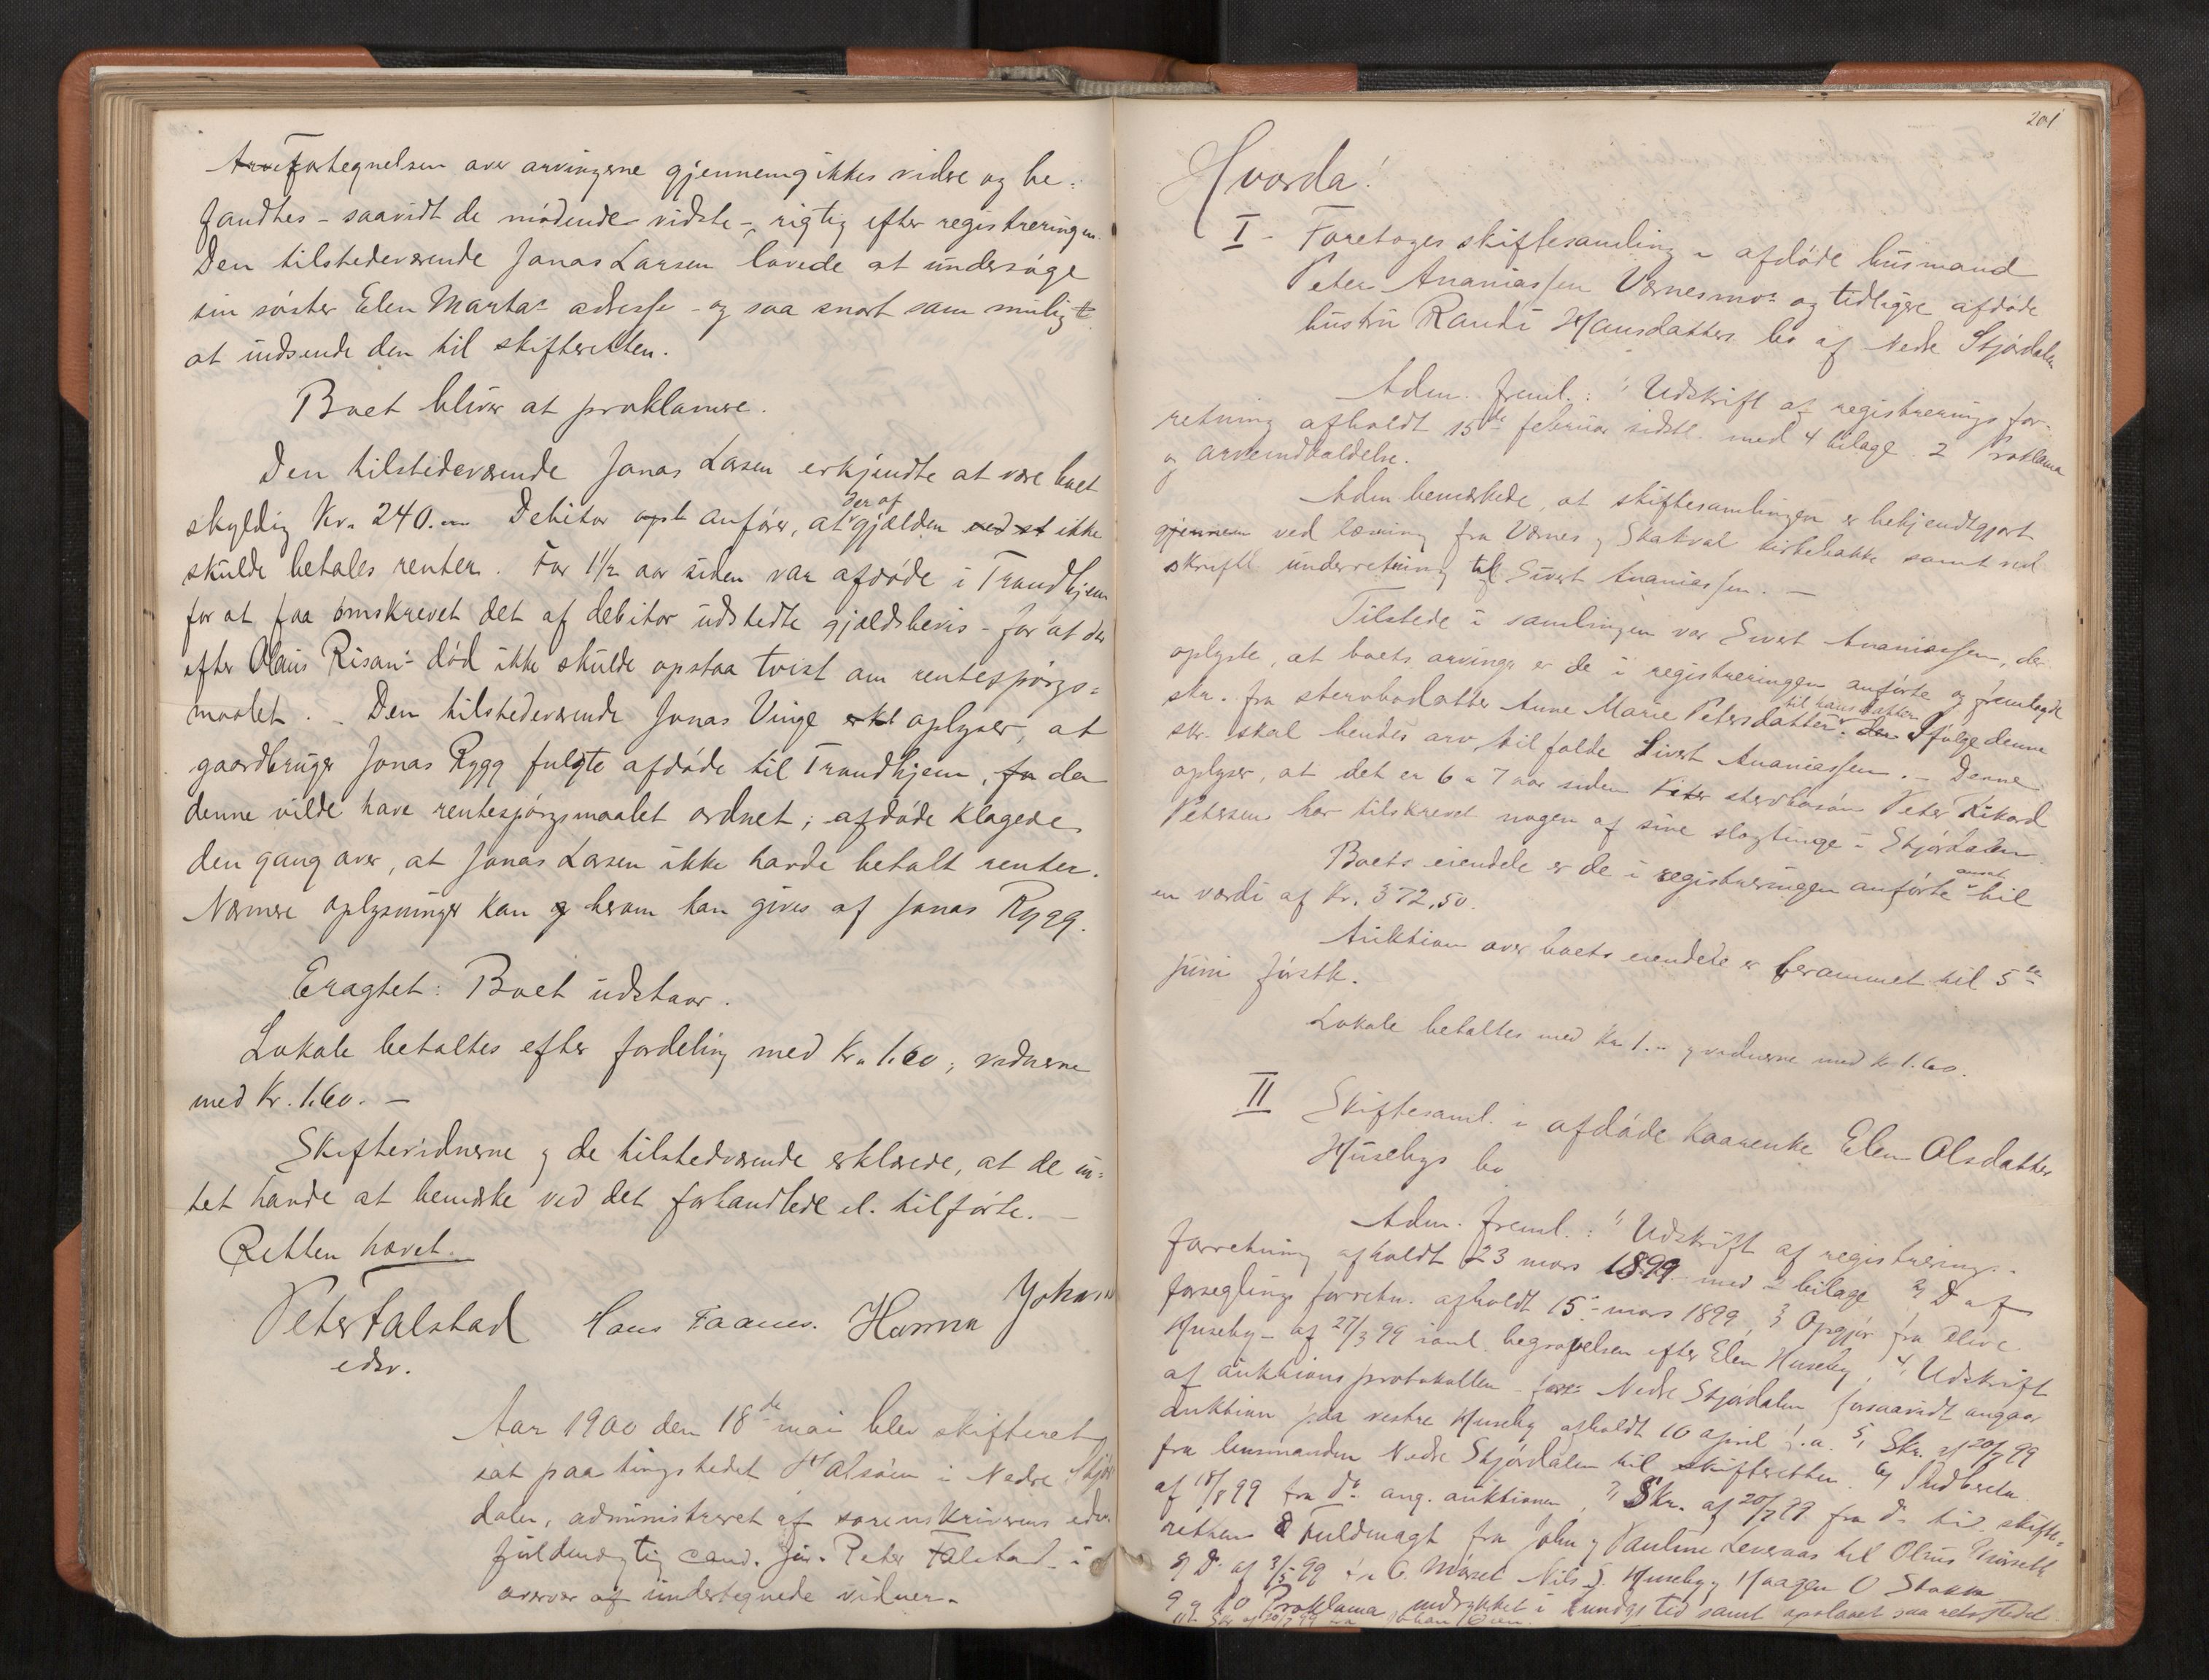 Fortegnelsen over arvingerne gjennemgikkes videre og be-
fandtes – saavidt de mødende vidste –, rigtig efter registreringen.
Den tilstedeværende Jonas Larsen lovede at undersøge
sin søster Elen Martas adresse – og saa snart som muligt
at indsende den til skifteretten.
Boet bliver at proklamere.
Den tilstedeværende Jonas Larsen erkjendte at være boet
skyldig Kr. 240.– Debitor anfører, at der af gjælden ved st ikke
skulde betales renter. For 1½ aar siden var afdøde i Trondhjem
for at faa omskrevet det af debitor udstedte gjældsbevis – for at der
efter Olaus Risan's død ikke skulde opstaa tvist om rentespørgs-
maalet. – Den tilstedeværende Jonas Vinge oplyser, at
gaardbruger Jonas Rygg fulgte afdøde til Trondhjem, da
denne vilde have rentespørgsmaalet ordnet; afdøde klagede
den gang over, at Jonas Larsen ikke havde betalt renter.
Nærmere oplysninger kan herom kan gives af Jonas Rygg.
Eragtet: Boet udstaar.
Lokale betaltes efter fordeling med Kr. 1.60, vidnerne
med Kr. 1.60. –
Skiftevidnerne og de tilstedeværende erklærede, at de in-
tet havde at bemærke ved det forhandlede el. tilførte. –
Retten hævet.
Peter Falstad Hans Faanes. Johan
edsv.
Aar 1900 den 18de mai blev skifteret
sat paa tingstedet Halsøen i Nedre Stjør
dalen, administreret af sorenskriverens edsv.
fuldmægtig cand. jur. Peter Falstad – i
overvær af undertegnede vidner.
201
Hvorda!
I – Foretoges skiftesamling i afdøde husmand
Peter Ananiassen Værnesmo's og tidligere afdøde
hustru Randi Hansdatters bo af Nedre Stjørdalen
Adm. freml.: 1, Udskrift af registreringsfor-
retning afholdt 15de februar sidstl. med 4 bilage. 2 Proklama
og arveindkaldelse.
Adm bemærkede, at skiftesamlingen er bekjendtgjort
gjennem ved læsning fra Værnes og Skatval kirkebakke samt ved
skriftl. underretning til Sivert Ananiassen. –
Tilstede i samlingen var Sivert Ananiassen, der
oplyste, at boets arvinger er de i registreringen anførte og fremlagde
skr. fra stervbodatter Anne Marie Petersdatter til hans datter. Ifølge denne
skr. skal hendes arv tilfalde Sivert Ananiassen. – Denne
oplyser, at det er 6 a 7 aar siden stervbosøn Peter Rikard
Petersen har tilskrevet nogen af sine slægtinge i Stjørdalen.
Boets eiendele er de i registreringen anførte ansat til
en værdi af Kr. 372,50.
Auktion over boets eiendele er berammet til 5te
juni førstk.
Lokale betaltes med Kr 1.– og vidnerne med Kr 1.60.
II Skiftesaml. i afdøde kaarenke Elen Olsdatter
Husebys bo
Adm. freml.: 1, Udskrift af registrerings-
forretning afholdt 23 mars 1899 med 2 bilage 2, Do af
forseglingsforretn. afholdt 15 mars 1899, 3 Opgjør fra Elive
Huseby – af 27/3 99 saml. begravelsen efter Elen Huseby, 4, Udskrift
af auktionsprotokollen for Nedre Stjørdalen forsaavidt angaar
auktion paa vestre Huseby afholdt 10 april f.a. 5, Skr. af 20/7 99
fra lensmanden Nedre Stjørdalen til skifteretten. 6,
af 18/8 99 fra do ang. auktionen, 7, Skr. af 20/7 99 fra do til skifte-
retten 8 Fuldmagt fra John og Pauline Leveraas til Olaus
9, Do af 3/5 99 Nils J. Huseby, Haagen O Stokkan
9 10 Proklama indrykket i kundg.tid samt opslaaet paa retsstedet